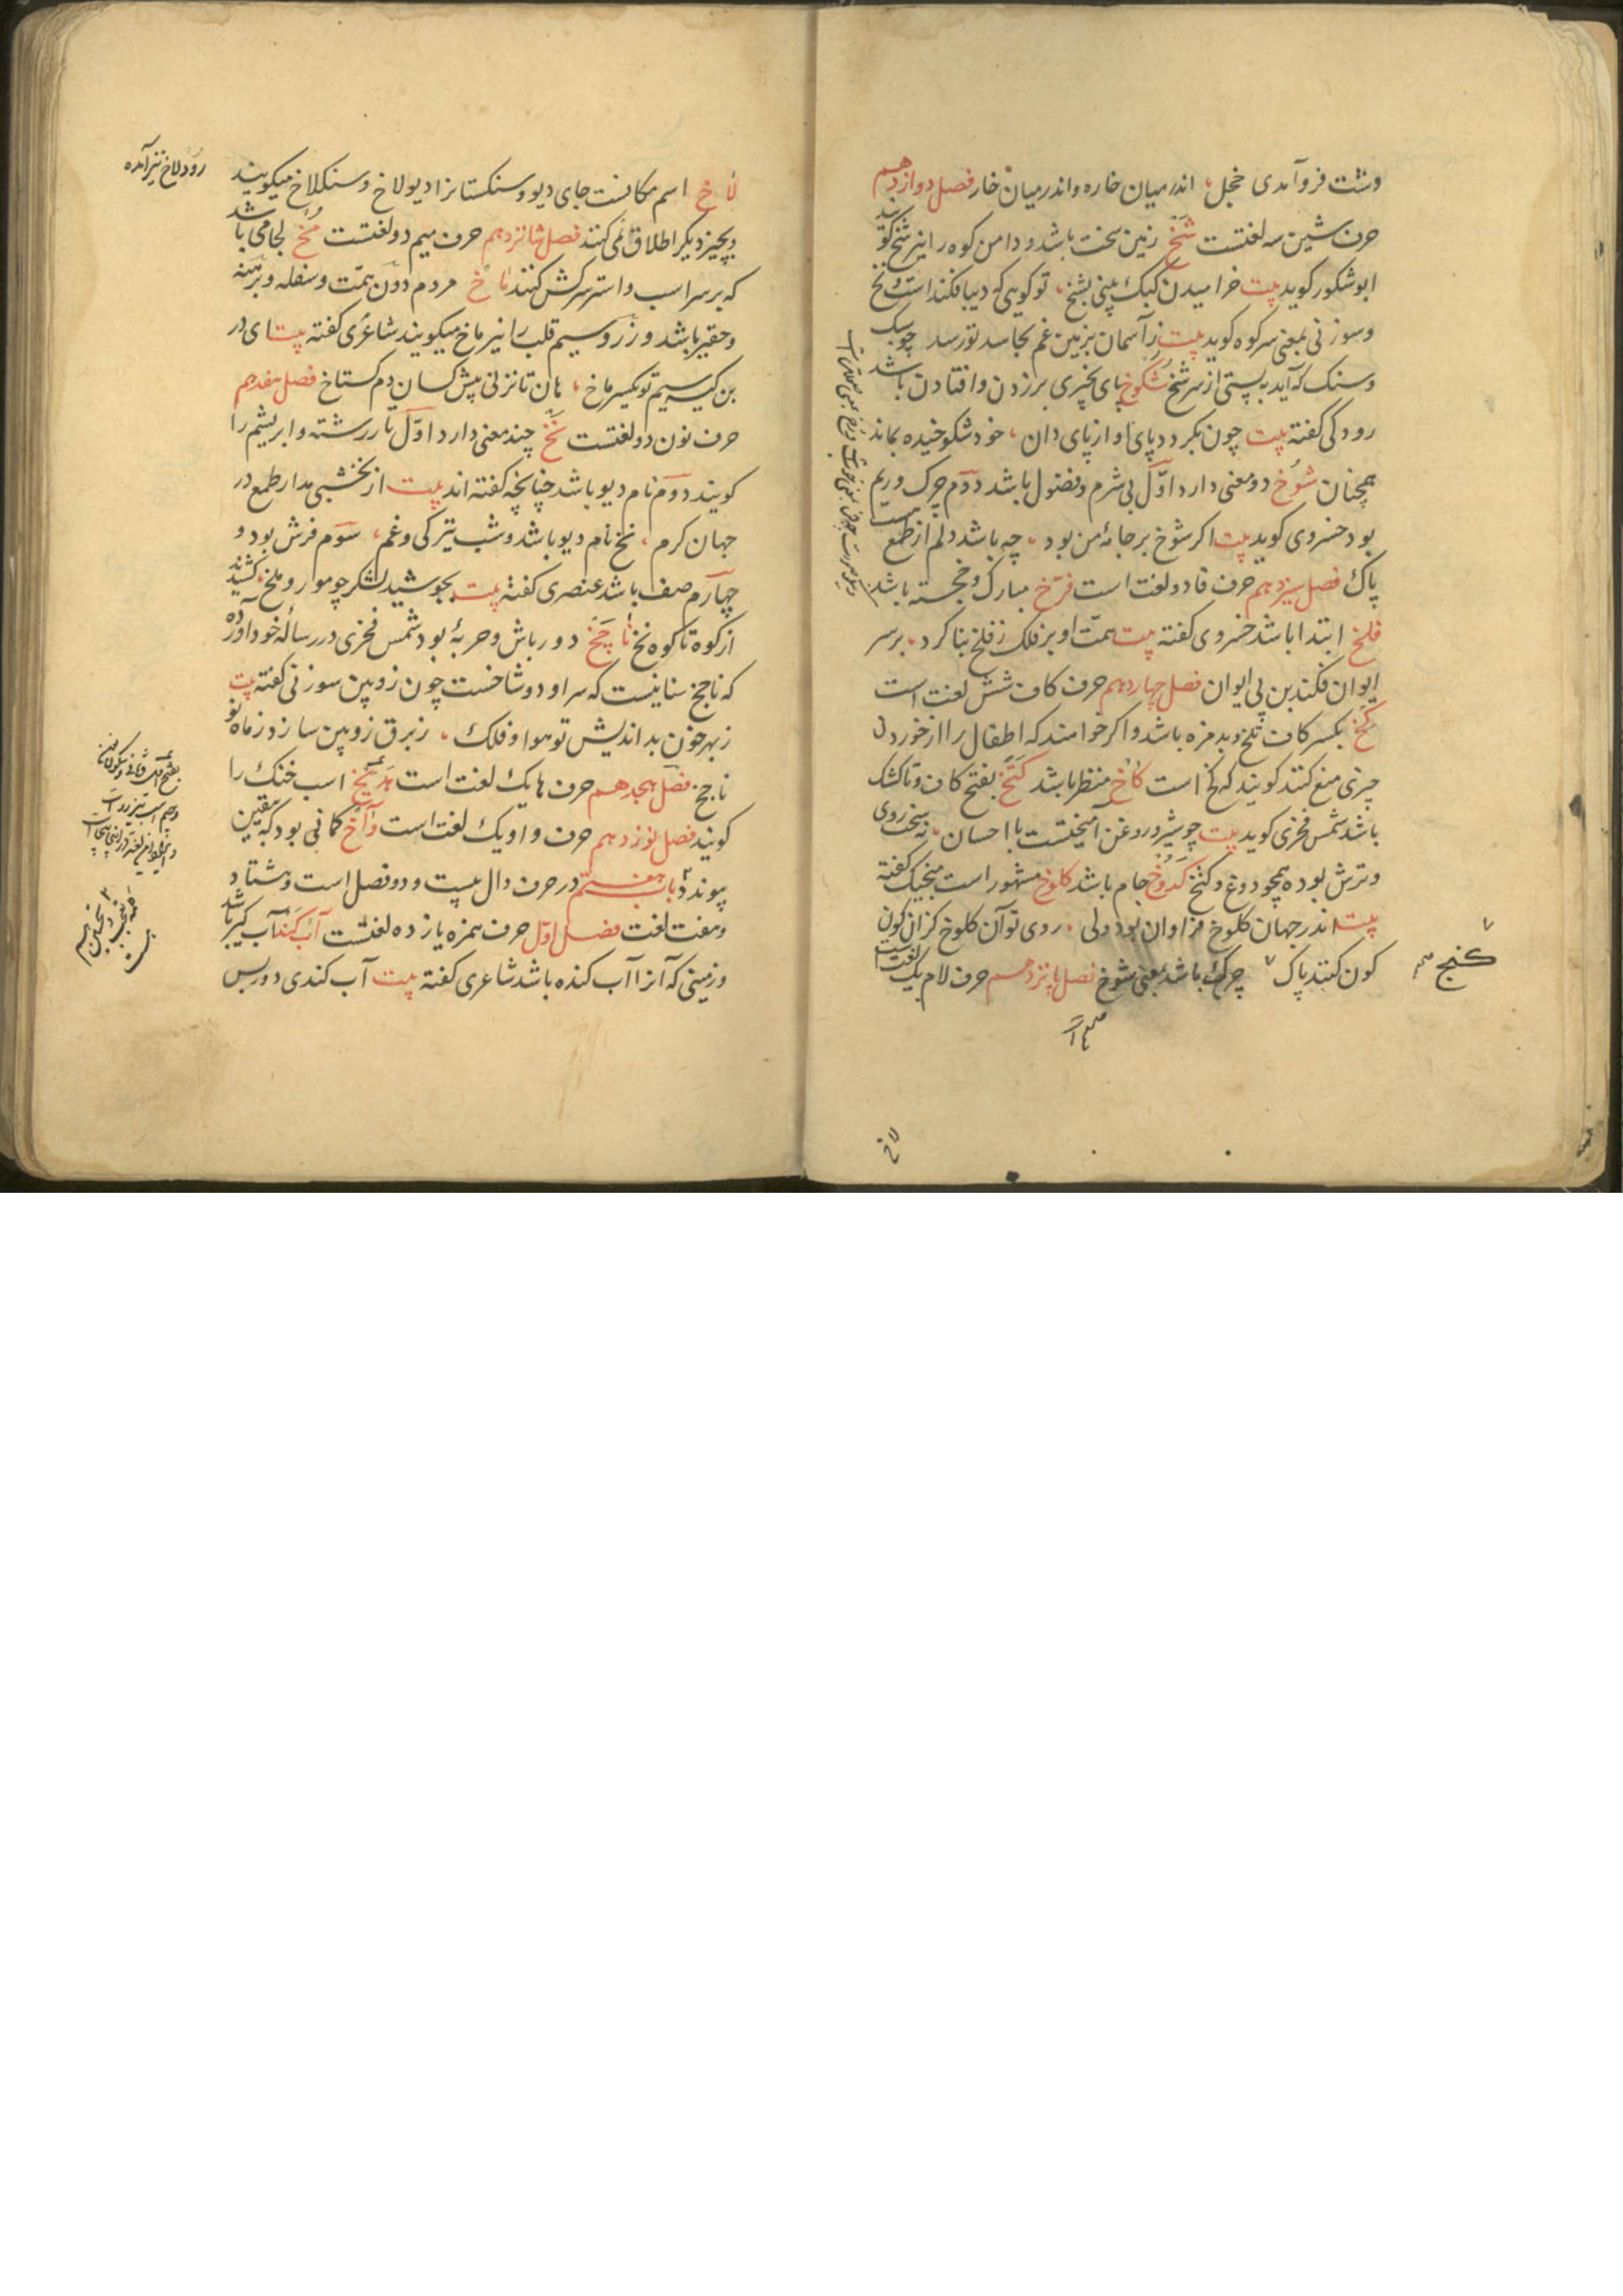 وشت فروآمدی خجل، اندر میان خاره واندر میان خار فصل دوازدهم
حرف شین سه لغتست شَخ زمین سخت باشد و دامن کوه را نیز شخ کویند
ابوشکور کوید بیت خرامیدن کبک بینی بشخ، تو کویی که دیبا فکنداست نخ
وسوزنی بمعنی سر کوه کوید بیت ز آسمان بزمین غم بحاسد تو رسد چو سیک
وسنک که آید به پستی از سر شخ شکوخ پای بچیزی بر زدن وافتادن باشد
رودکی کفته بیت چون بکردد پای او از پای دان، خود شکوخیده بماند
همچنان شوخ دو معنی دارد اوّل بی شرم وفضول باشد دوّم چرک وریم
بود خسروی کوید بیت اکر شوخ بر جامهٔ من بود، چه باشد دلم از طمع
پاک فصل سیزدهم حرف فا دو لغت است فرّخ مبارک وخجسته باشد
فلخ ابتدا باشد خسروی کفته بیت همّت او بر فلک ز فلخ بنا کرد، بر سر
ایوان فکند بن پی ایوان فصل چهاردهم حرف کاف شش لغت است
کخ بکسر کاف تلخ وبدمزه باشد واکر خواهند که اطفال را از خوردن
چیزی منع کنند کویند که کخ است کاخ منظر باشد کتخ بفتح کاف وتا کشک
باشد شمس فخری کوید بیت چو شیر و روغن آمیختست با احسان، نه سخت روی
وترش بوده همچو دوغ وکتخ کدوخ جام باشد کلوخ مشهور است منجیک کفته
بیت اندر جهان کلوخ فراوان بود ولی، روی تو آن کلوخ کز آن کون
کون کنند پاک چرک باشد بمعنی شوخ فصل پانزدهم حرف لام یک لغتست
کنج
لاخ
لاخ اسم مکانست جای دیو وسنکستانرا دیولاخ وسنکلاخ میکویند
رودلاخ نیز آمده
وبچیز دیکر اطلاق نمی کنند فصل شانزدهم حرف میم دو لغتست مُخ لجامی باشد
که بر سر اسب واستر سرکش کنند ماخ مردم دون همّت وسفله وبرهنه
وحقیر باشد وزر وسیم قلب را نیز ماخ میکویند شاعری کفته بیت ای در
بن کیسه سیم تو یکسر ماخ، هان تا نزنی پیش کسان دم کستاخ فصل هفدهم
حرف نون دو لغتست نَخ چند معنی دارد اوّل تار رشته وابریشم را
کویند دوّم نام دیو باشد چنانچه کفته اند بیت از بخشبی مدار طمع در
جهان کرم، نخ نام دیو باشد وشب تیرکی وغم، سوّم فرش بود و
چهارم صف باشد عنصری کفته بیت بجوشید لشکر چو مور وملخ، کشیدند
از کوه تا کوه نخ ناجخ دورباش وحربهٔ بود شمس فخری در رسالهٔ خود آورده
که ناجخ سنانیست که سر او دو شاخست چون زوبین سوزنی کفته بیت
ز بهر خون بداندیش تو هوا وفلک، ز برق زوبین سازد ز ماه نو
ناجخ فصل هجدهم حرف ها یک لغت است اسب خنک را
کویند فصل نوزدهم حرف واو یک لغت است واخ کمانی بود که بیقین
پیوندد باب هفتم در حرف دال بیست و دو فصل است وهشتاد
وهفت لغت فصل اوّل حرف همزه یازده لغتست آب کند آب کیر باشد
وزمینی که آنرا آب کنده باشد شاعری کفته بیت آب کندی دور بس